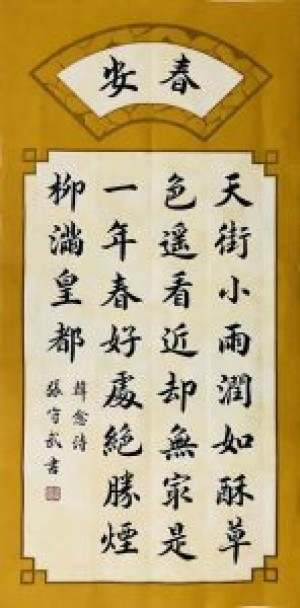 春安
天街小雨潤如酥草
色遥看近却無㝡是
一年春好處絶勝煙
柳滿皇都
韓愈詩
張守武書